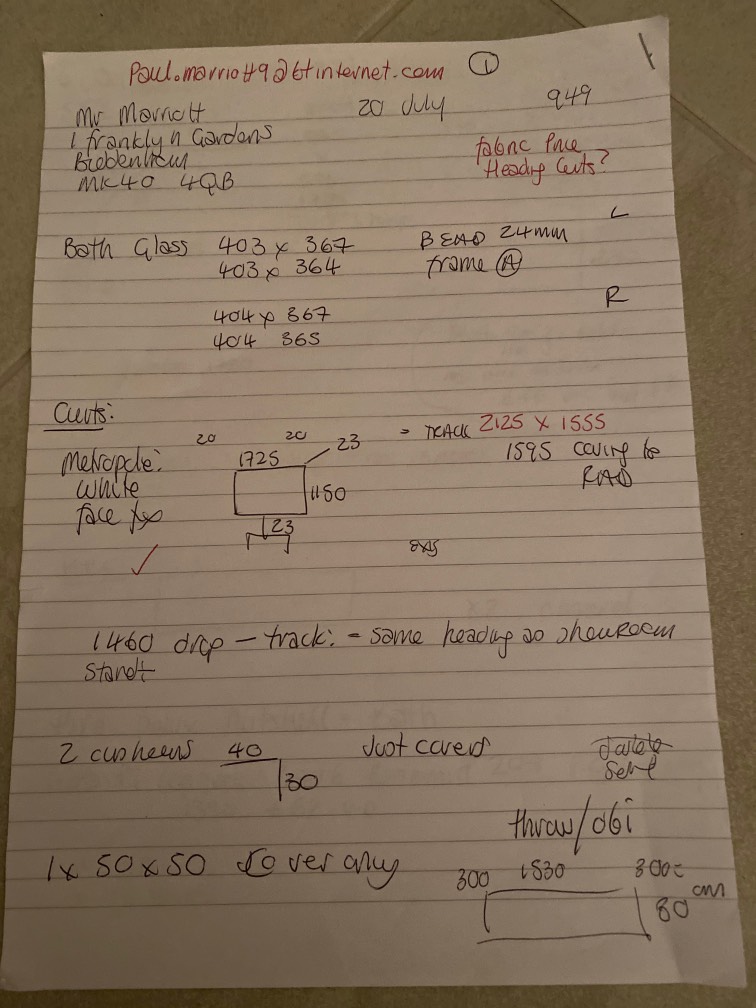 Paul.marriott9@btinternet.com 1
Mr Marriott 20 July 949
1 franklyn Gardens
Biddenham
MK40 4QB
fabric Price
Heading Curts?
L
Both Glass 403 x 367 BEAD 24mm
403 x 364 frame A
R
404 x 367
404 365
Curts:
20 20 23 = TRACK 2125 x 1555
Metropole: 1725 1595 coving to
white 1150 RAD
face fix
23
1460 drop - track: = same heading as showroom
stand
2 cusheens 40 Just covers
30
throw/obi
1 x 50 x 50 Cover only
300 1530 300
80 cm